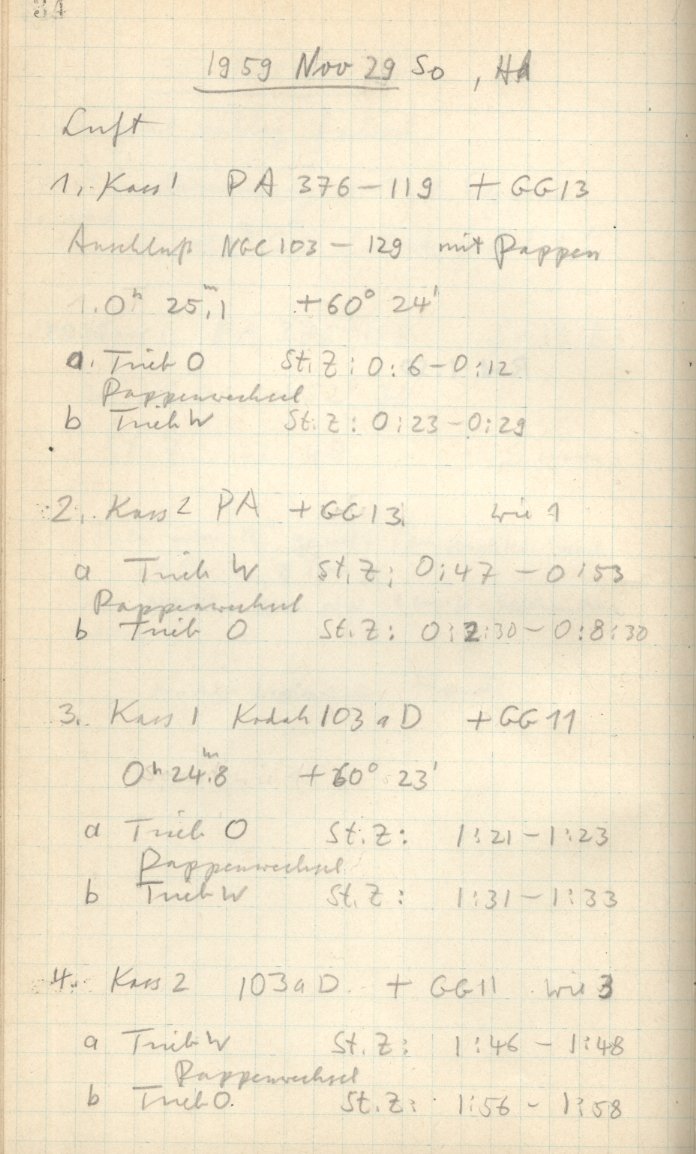 34
1959 Nov 29 So, HH
Luft
1. Kass 1 PA 376-119 + GG13
Anschluß NGC 103 - 129 mit Pappen
1. 0ʰ 25ᵐ,1 +60° 24'
a. Trieb O St.Z: 0:6-0:12
Pappenwechsel
b Trieb W St.Z: 0:23-0:29
2. Kass 2 PA + GG13. wie 1
a Trieb W St.Z: 0:47 - 0:53
Pappenwechsel
b Trieb O St.Z: 0:2:30 - 0:8:30
3. Kass 1 Kodak 103 a D + GG 11
0ʰ 24ᵐ.8 +60° 23'
a Trieb O St.Z: 1:21 - 1:23
Pappenwechsel
b Trieb W St.Z: 1:31 - 1:33
4. Kass 2 103 a D + GG11 wie 3
a Trieb W St.Z: 1:46 - 1:48
Pappenwechsel
b Trieb O. St.Z: 1:56 - 1:58